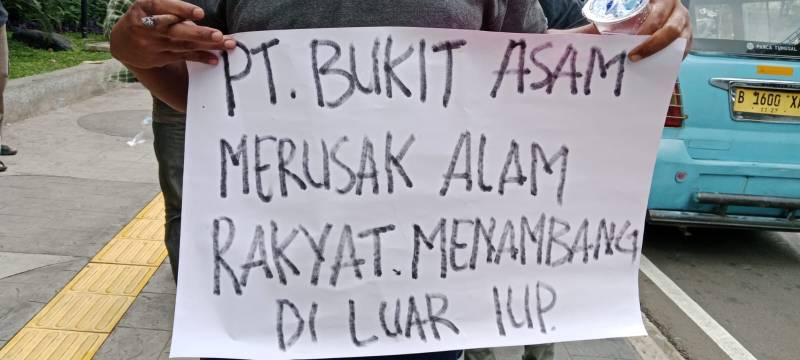 PT. BUKIT ASAM
MERUSAK ALAM
RAKYAT. MENAMBANG
DI LUAR IUP.
PANCA TUNGGAL
B 1600